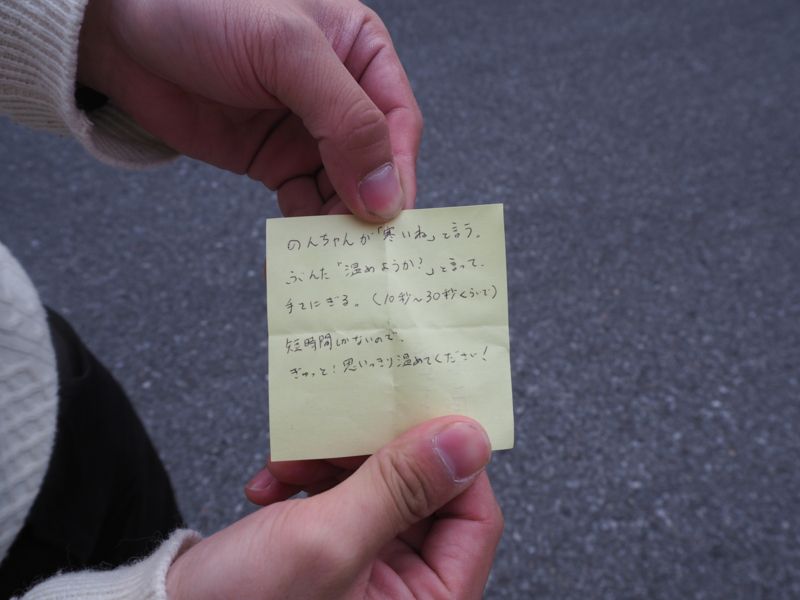 のんちゃんが「寒いね」と言う。
ぶんた「温めようか?」と言って、
手をにぎる。(10秒〜30秒くらいで)
短時間しかないので、
ぎゅっと!思いっきり温めてください!